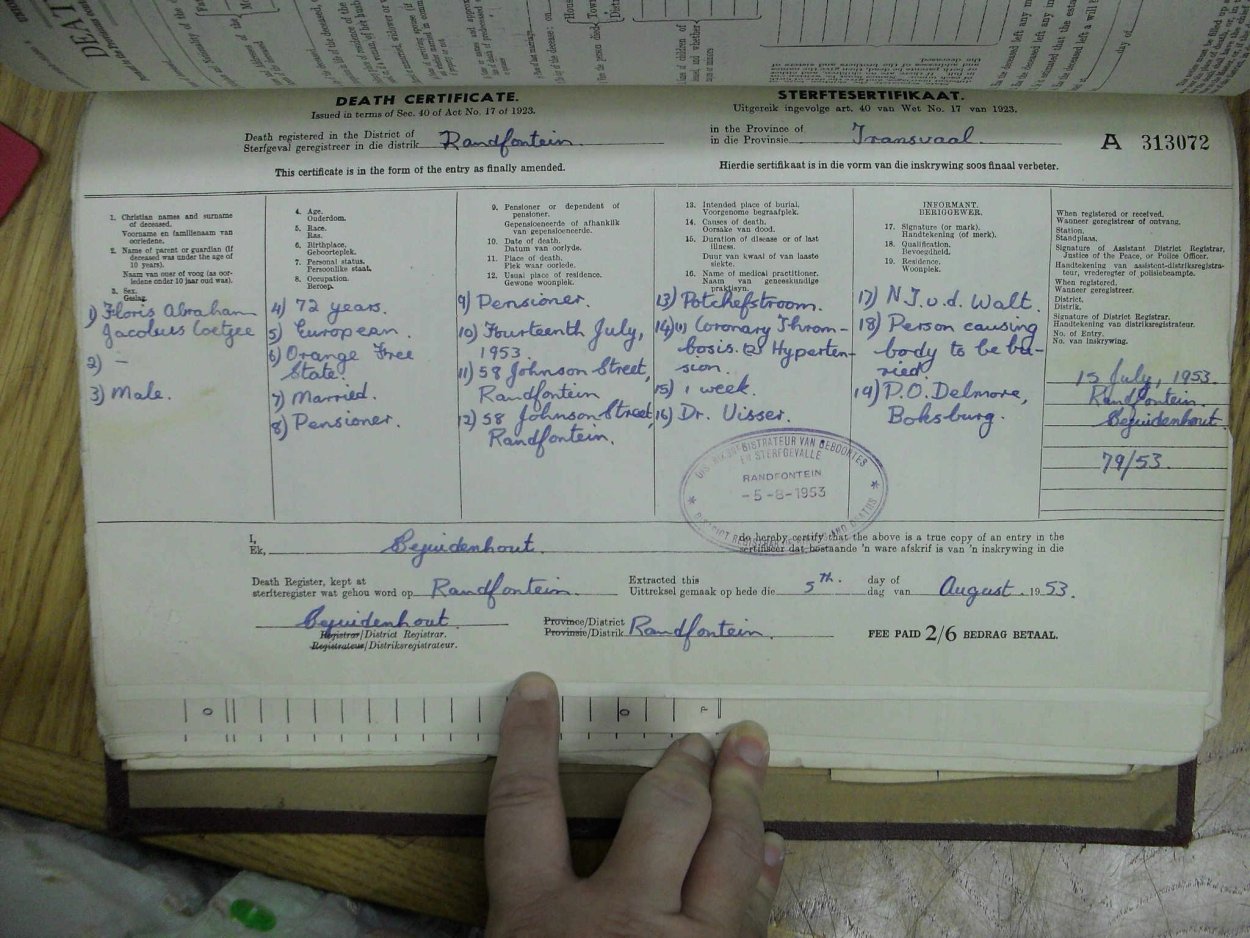 DEATH CERTIFICATE.
Issued in terms of Sec. 40 of Act No. 17 of 1923.
STERFTESERTIFIKAAT.
Uitgereik ingevolge art. 40 van Wet No. 17 van 1923.
Death registered in the District of
Sterfgeval geregistreer in die distrik Randfontein.
in the Province of
in die Provinsie Transvaal.
A 313072
This certificate is in the form of the entry as finally amended.
Hierdie sertifikaat is in die vorm van die inskrywing soos finaal verbeter.
1. Christian names and surname
of deceased.
Voorname en familienaam van
oorledene.
2. Name of parent or guardian (if
deceased was under the age of
10 years).
Naam van ouer of voog (as oor-
ledene onder 10 jaar oud was).
3. Sex.
Geslag.
1) Floris Abraham
Jacobus Coetzee
2) –
3) Male.
4. Age.
Ouderdom.
5. Race.
Ras.
6. Birthplace.
Geboorteplek.
7. Personal status.
Persoonlike staat.
8. Occupation.
Beroep.
4) 72 years.
5) European.
6) Orange Free
State.
7) Married.
8) Pensioner.
9. Pensioner or dependent of
pensioner.
Gepensioeneerde of afhanklik
van gepensioeneerde.
10. Date of death.
Datum van oorlyde.
11. Place of death.
Plek waar oorlede.
12. Usual place of residence.
Gewone woonplek.
9) Pensioner.
10) Fourteenth July,
1953.
11) 58 Johnson Street,
Randfontein
12) 58 Johnson Street,
Randfontein.
13. Intended place of burial.
Voorgenome begraafplek.
14. Causes of death.
Oorsake van dood.
15. Duration of disease or of last
illness.
Duur van kwaal of van laaste
siekte.
16. Name of medical practitioner.
Naam van geneeskundige
praktisyn.
13) Potchefstroom.
14) (1) Coronary Throm-
bosis. (2) Hyperten-
sion.
15) 1 week.
16) Dr. Visser.
INFORMANT.
BERIGGEWER.
17. Signature (or mark).
Handtekening (of merk).
18. Qualification.
Bevoegdheid.
19. Residence.
Woonplek.
17) N.J.v.d. Walt.
18) Person causing
body to be bu-
ried
19) P.O. Delmore,
Boksburg.
When registered or received.
Wanneer geregistreer of ontvang.
Station.
Standplaas.
Signature of Assistant District Registrar,
Justice of the Peace, or Police Officer.
Handtekening van assistent-distriksregistra-
teur, vrederegter of polisiebeampte.
When registered.
Wanneer geregistreer.
District.
Distrik.
Signature of District Registrar.
Handtekening van distriksregistrateur.
No. of Entry.
No. van inskrywing.
15 July, 1953.
Randfontein.
Bezuidenhout.
79/53.
RANDFONTEIN
-5-8-1953
I,
Ek, Bezuidenhout. do hereby certify that the above is a true copy of an entry in the
sertifiseer dat bostaande 'n ware afskrif is van 'n inskrywing in die
Death Register, kept at
sterfteregister wat gehou word op Randfontein.
Extracted this
Uittreksel gemaak op hede die 5th. day of
dag van August. 1953.
Bezuidenhout.
Registrar/District Registrar.
Registrateur/Distriksregistrateur.
Province/District
Provinsie/Distrik Randfontein.
FEE PAID 2/6 BEDRAG BETAAL.